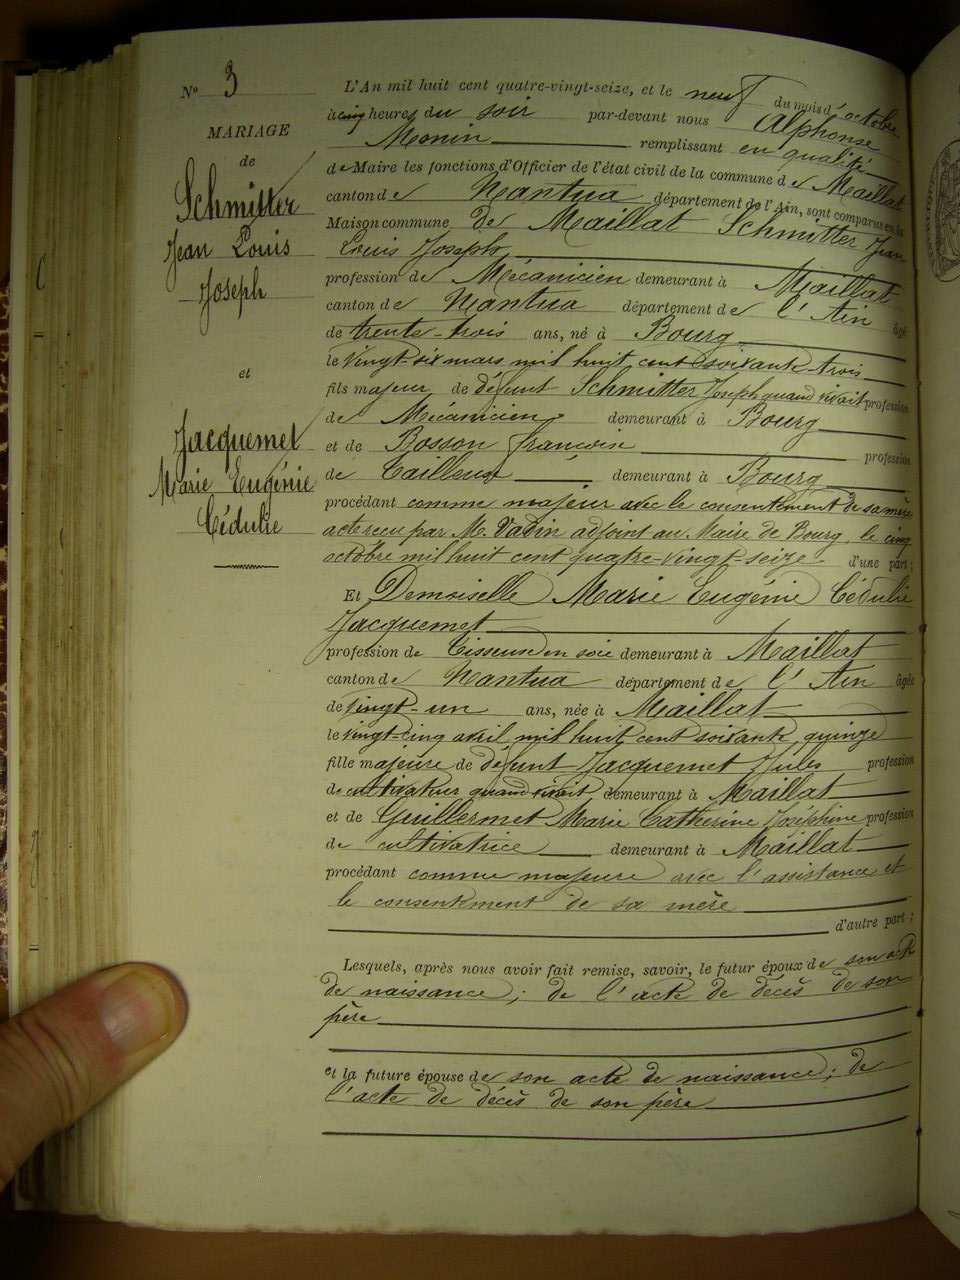 N° 3
MARIAGE
de
Schmitter
Jean Louis
Joseph
et
Jacquemet
Marie Eugénie
Cédulie
L'An mil huit cent quatre-vingt-seize, et le neuf du mois d'octobre
à cinq heures du soir par-devant nous Alphonse
Monin remplissant en qualité
de Maire les fonctions d'Officier de l'état civil de la commune de Maillat
canton de Nantua département de l'Ain, sont comparus en la
Maison commune de Maillat Schmitter Jean
Louis Joseph
profession de Mécanicien demeurant à Maillat
canton de Nantua département de l'Ain âgé
de trente-trois ans, né à Bourg
le vingt-six mars mil huit cent soixante-trois
fils majeur de défunt Schmitter Joseph quand vivait profession
de Mécanicien demeurant à Bourg
et de Bosson françoise profession
de Tailleuse demeurant à Bourg
procédant comme majeur avec le consentement de sa mère
acte reçu par M. Vadin adjoint au Maire de Bourg, le cinq
octobre mil huit cent quatre-vingt-seize d'une part;
Et Demoiselle Marie Eugénie Cédulie
Jacquemet
profession de Tisseuse en soie demeurant à Maillat
canton de Nantua département de l'Ain âgée
de vingt-un ans, née à Maillat
le vingt-cinq avril mil huit cent soixante quinze
fille majeure de défunt Jacquemet Jules profession
de cultivateur quand vivait demeurant à Maillat
et de Guillermet Marie Catherine Joséphine profession
de cultivatrice demeurant à Maillat
procédant comme majeure avec l'assistance et
le consentement de sa mère
d'autre part;
Lesquels, après nous avoir fait remise, savoir, le futur époux de son acte
de naissance; de l'acte de décès de son
père
et la future épouse de son acte de naissance; de
l'acte de décès de son père